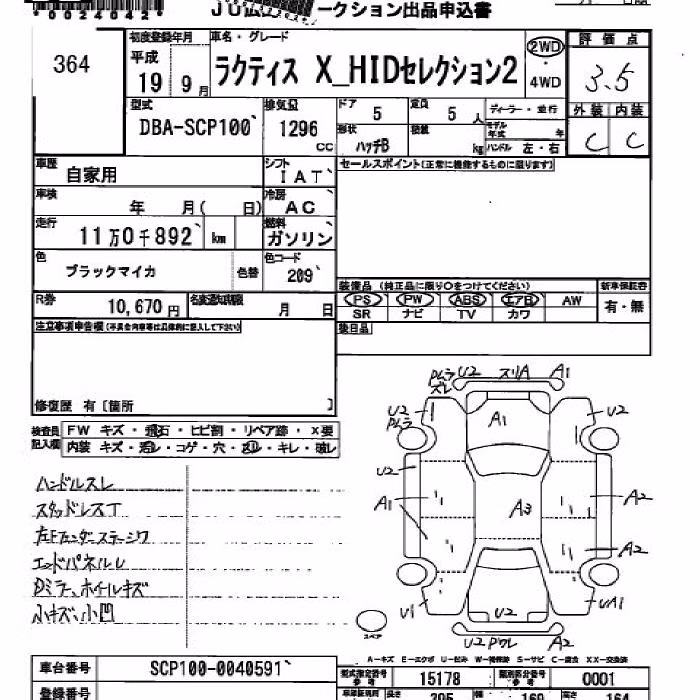 *0024042*
ークション出品申込書
364
初度登録年月
平成
19 9月
車名・グレード
ラクティス X_HIDセレクション2
2WD
・
4WD
評価点
3.5
外装 内装
C C
型式
DBA-SCP100
排気量
1296
CC
ドア
5
定員
5人
形状
ハッチB
積載
kg
ディーラー・並行
モデル年式 年
ハンドル 左・右
車歴
自家用
シフト
IAT
セールスポイント(正常に機能するものに限ります)
車検
年 月( 日)
冷房
AC
走行
11万0千892 km
燃料
ガソリン
色
ブラックマイカ
色替
色コード
209
装備品 (純正品に限り○をつけてください)
新車保証書
PS PW ABS エアB AW
SR ナビ TV カワ
有・無
R券
10,670円
名変通知期限
月 日
後日品
注意事項申告欄(不具合内容等は具体的に記入して下さい)
修復歴 有〔箇所 〕
検査員記入欄
FW キズ・飛石・ヒビ割・リペア跡・X要
内装 キズ・汚レ・コゲ・穴・スレ・キレ・破レ
ハンドルスレ
スタッドレスT
左Fフェンダーステージワ
エンドパネルU
Dミラー、ホイルキズ
小キズ、小凹
PムラU2 スリA A1
ズレ
U2
Pムラ
A1
U2
U2
A1
A3
A2
A2
U1
U2
UA1
U2PワレA2
スペア
A-キズ E-エクボ U-凹ミ W-補修跡 S-サビ C-腐食 XX-交換済
車台番号
SCP100-0040591
登録番号
型式指定番号
参考
15178
類別区分番号
参考
0001
長さ
395
幅
169
高さ
164